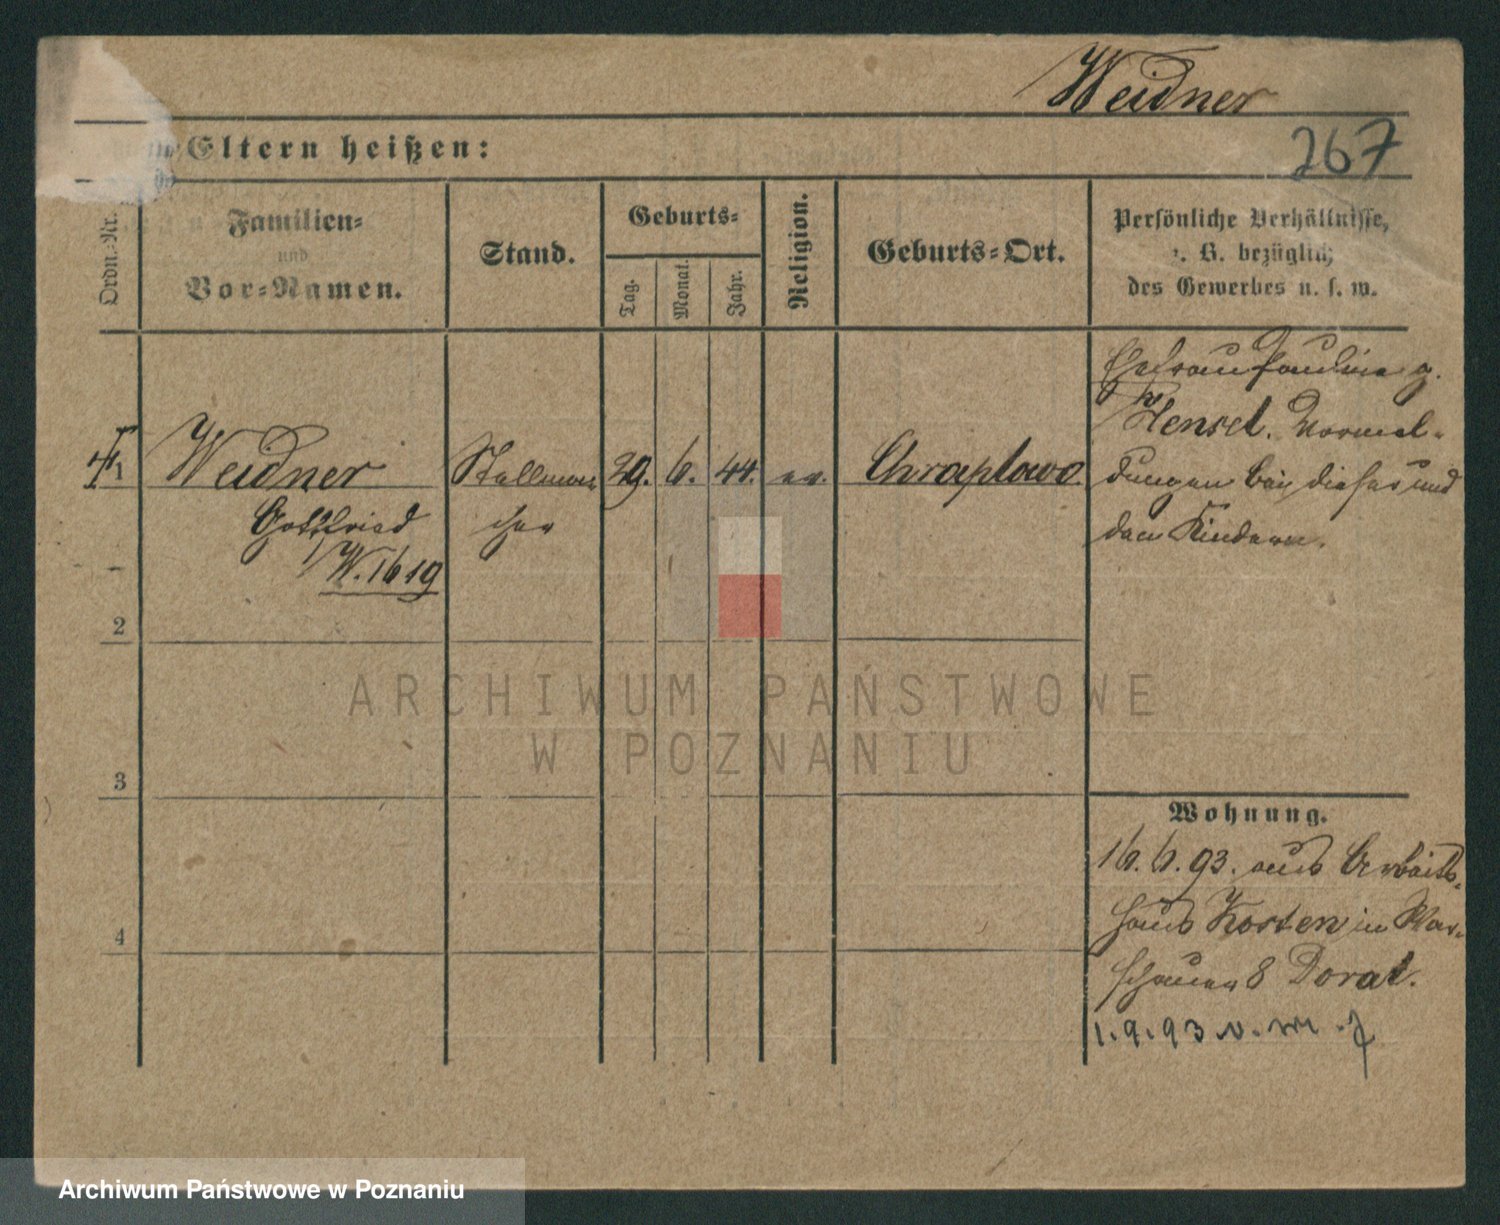 Weidner
267
Eltern heißen:
Ordn.-Nr.
Familien-
und
Vor-Namen.
Stand.
Geburts-
Tag.
Monat.
Jahr.
Religion.
Geburts-Ort.
Persönliche Verhältnisse,
z. B. bezüglich
des Gewerbes u. s. w.
1
Weidner
Gottfried
W. 1619
Stellmacher
29. 6. 44. ev.
Chraplewo
Ehefrau Pauline g.
Hensel. Vormel-
dungen bei dieser und
den Kindern.
2
3
4
Wohnung.
16. 6. 93. aus Arbeits-
haus Kosten in War-
schauer 8 Dorat.
1. 9. 93 n.
ARCHIWUM PAŃSTWOWE
W POZNANIU
Archiwum Państwowe w Poznaniu